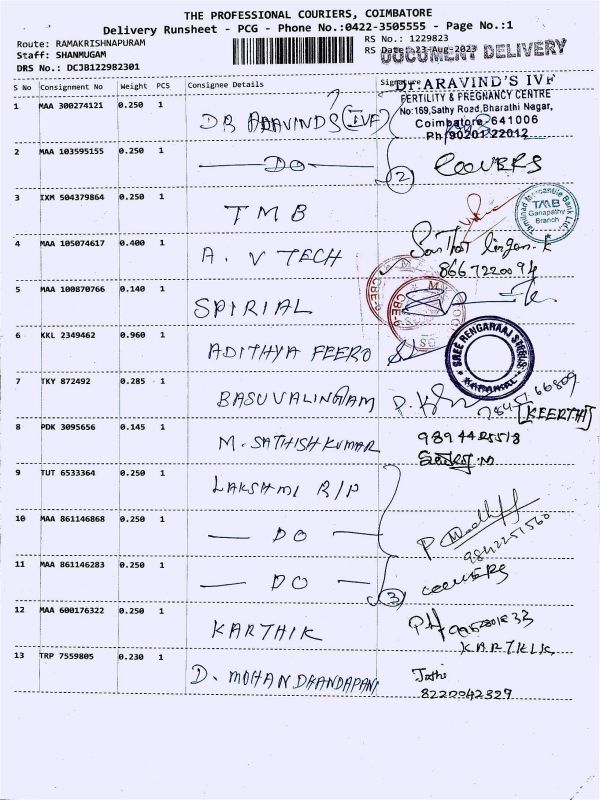 THE PROFESSIONAL COURIERS, COIMBATORE
Delivery Runsheet - PCG - Phone No.:0422-3505555 - Page No.:1
Route: RAMAKRISHNAPURAM
RS No.: 1229823
Staff: SHANMUGAM
RS Date: 23-Aug-2023
DOCUMENT DELIVERY
DRS No.: DCJB122982301
S No Consignment No Weight PCS Consignee Details Signature
Dr. ARAVIND'S IVF
FERTILITY & PREGNANCY CENTRE
No:169,Sathy Road,Bharathi Nagar,
Coimbatore-641006
Ph:90201 22012
1 MAA 300274121 0.250 1 DR ARAVINDS (IVF)
2 MAA 103595155 0.250 1 DO 2 COOVERS
3 IXM 504379864 0.250 1 TMB
Tamilnad Mercantile Bank Ltd.
TMB
Ganapathy
Branch
4 MAA 105074617 0.400 1 A. V TECH
8667220094
5 MAA 100870766 0.140 1 SPIRIAL
6 KKL 2349462 0.960 1 ADITHYA FEERO
SREE RENGARAAJ
7 TKY 872492 0.285 1 BASUVALINGAM
[KEERTHI]
8 PDK 3095656 0.145 1 M. SATHISH KUMAR
9 TUT 6533364 0.250 1 LAKSHMI R/P
10 MAA 861146868 0.250 1 DO
9842251560
11 MAA 861146283 0.250 1 DO 3 COOVERS
12 MAA 600176322 0.250 1 KARTHIK
KARTHIK
13 TRP 7559805 0.230 1 D. MOHAN DHANDAPANI
Jothi
8220042329